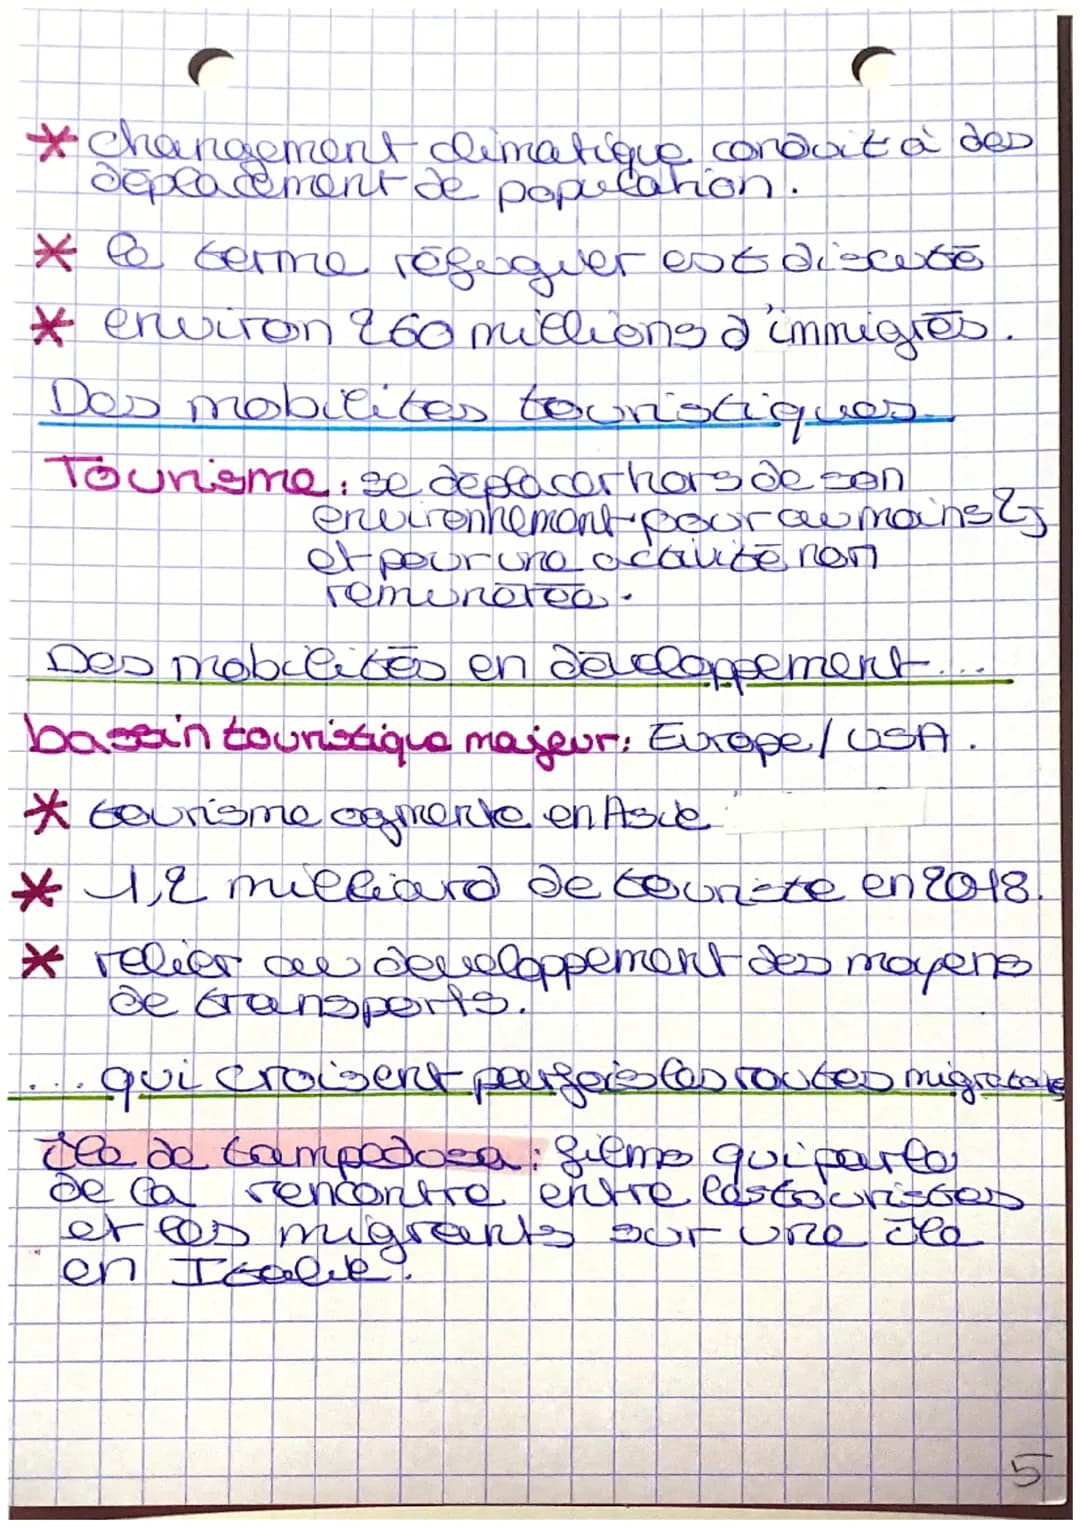 * changement climatique conduit à des
déplacement de population.
* le terme réfuguer est discuté
* environ 260 millions d'immigrés.
Des mobilites touristiques
Tourisme: se déplacer hors de son
environnement pour au moins 2j
et pour une acauité non
remunérée.
Des mobilités en developpement...
bassin touristique majeur: Europe/USA.
* tourisme ogmente en Asie
* 1,2 milliard de touriste en 2018.
* relier au developpement des moyens
de transports.
... qui croisent parfois les routes migratoire
île de Lampedosa: films qui parle
de la rencontre entre les touristes
et les migrants sur une île
en Italie.
5